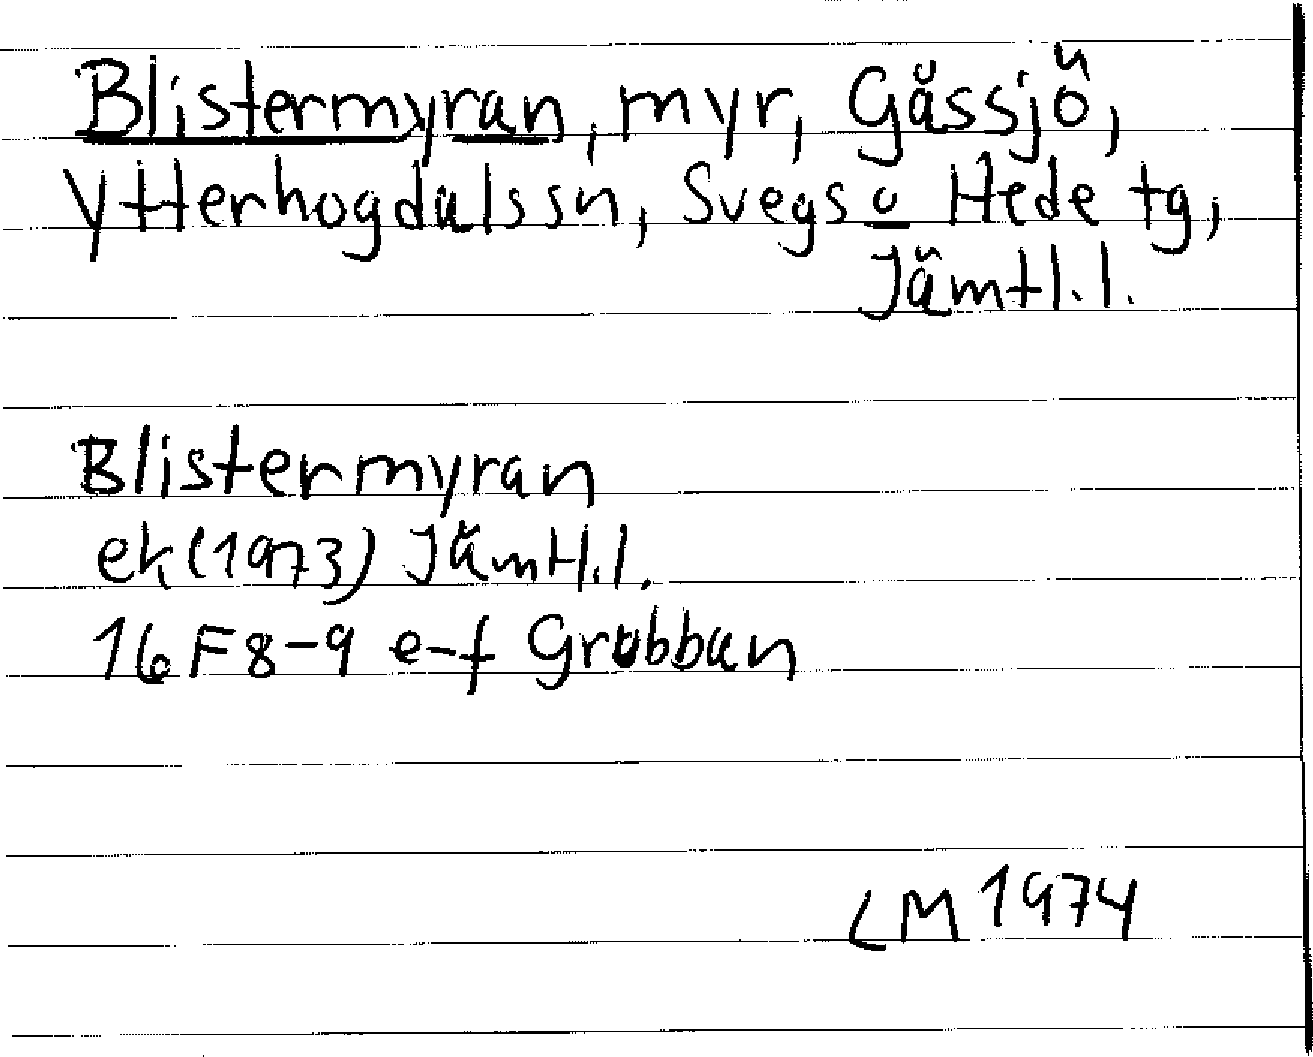 Blistermyran, myr, Gåssjö,
Ytterhogdalssn, Svegs o Hede tg,
Jämtl.l.
Blistermyran
ek(1973) Jämtl.l.
16F8-9 e-f Grubban
LM 1974